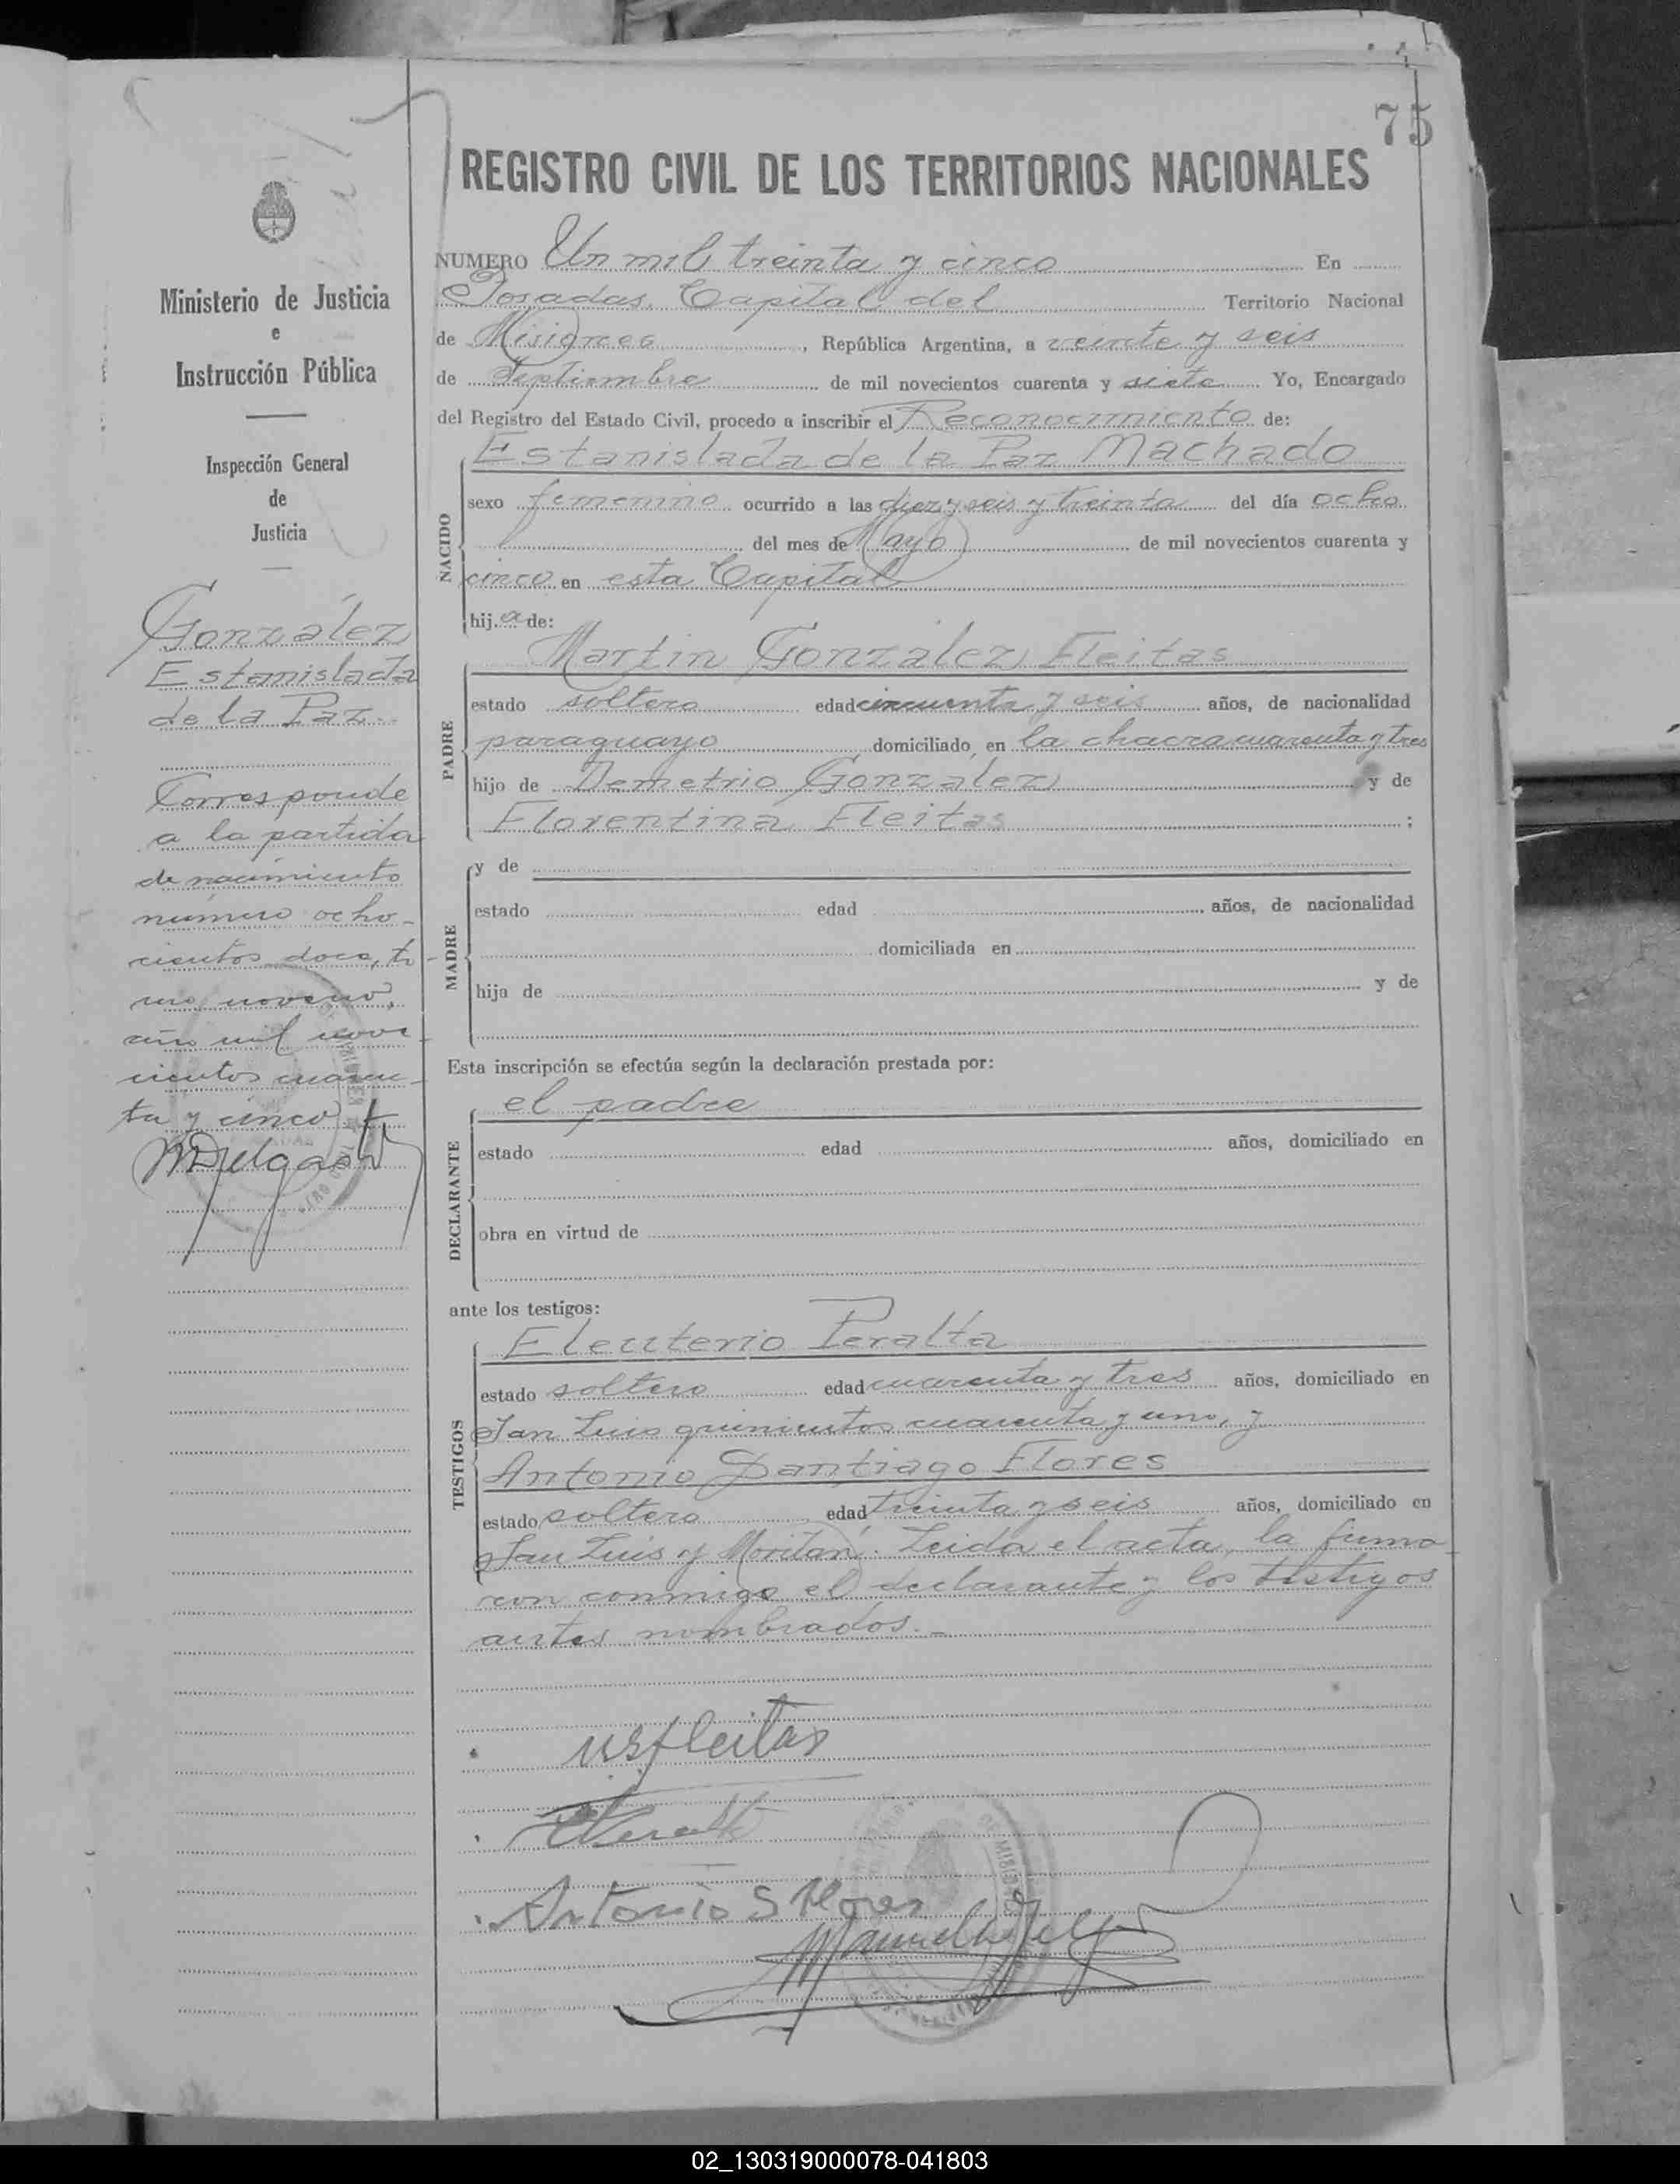 75
REGISTRO CIVIL DE LOS TERRITORIOS NACIONALES
Ministerio de Justicia
e
Instrucción Pública
Inspección General
de
Justicia
González
Estanislada
de la Paz
Corresponde
a la partida
de nacimiento
número ocho-
cientos doce, to-
mo noveno,
año mil nove-
cientos cuaren-
ta y cinco
MDelgado
NUMERO Un mil treinta y cinco En
Posadas, Capital del Territorio Nacional
de Misiones, República Argentina, a veinte y seis
de Septiembre de mil novecientos cuarenta y siete Yo, Encargado
del Registro del Estado Civil, procedo a inscribir el Reconocimiento de:
Estanislada de la Paz Machado
NACIDO
sexo femenino ocurrido a las diez y seis y treinta del día ocho
del mes de Mayo de mil novecientos cuarenta y
cinco en esta Capital
hija de:
Martin González Fleitas
PADRE
estado soltero edad cincuenta y seis años, de nacionalidad
paraguayo domiciliado en la chacra cuarenta y tres
hijo de Demetrio González y de
Florentina Fleitas ;
MADRE
y de
estado edad años, de nacionalidad
domiciliada en
hija de y de
Esta inscripción se efectúa según la declaración prestada por:
el padre
DECLARANTE
estado edad años, domiciliado en
obra en virtud de
ante los testigos:
Eleuterio Peralta
TESTIGOS
estado soltero edad cuarenta y tres años, domiciliado en
San Luis quinientos cuarenta y uno, y
Antonio Santiago Flores
estado soltero edad treinta y seis años, domiciliado en
San Luis y Moritan. Leida el acta, la firma-
ron conmigo el declarante y los testigos
antes nombrados.-
Fleitas
Antonio S Flores
02_130319000078-041803